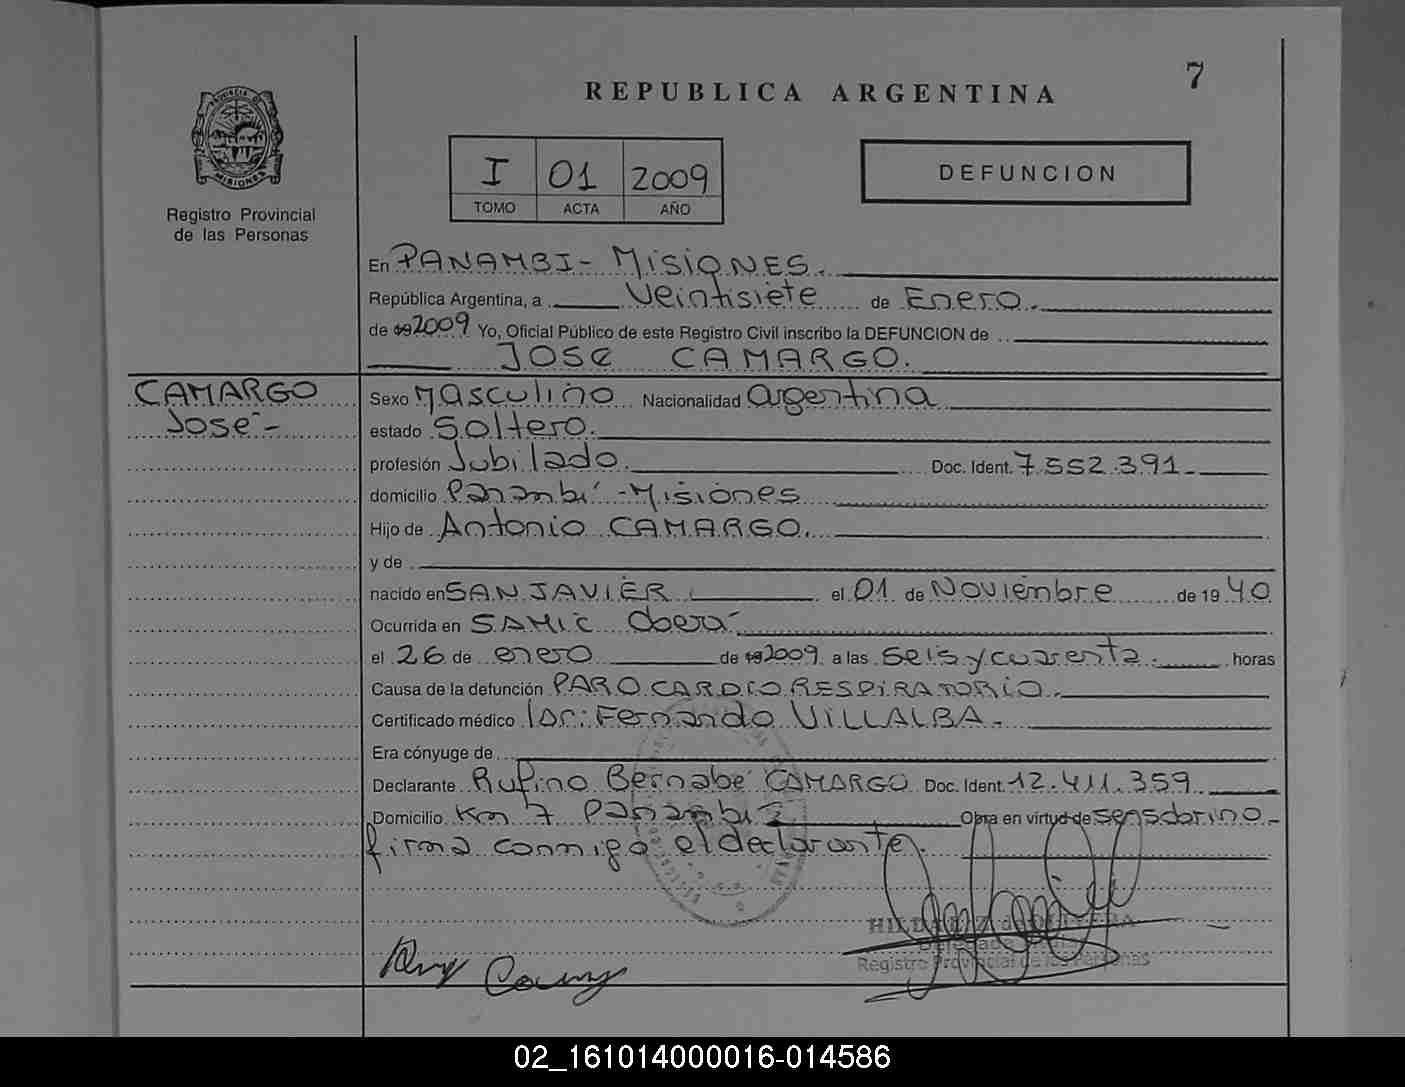 7
REPUBLICA ARGENTINA
PROVINCIA D
MISIONES
Registro Provincial
de las Personas
I 01 2009
TOMO ACTA AÑO
DEFUNCION
En PANAMBI- MISIONES.
República Argentina, a Veintisiete de Enero.
de 19 2009 Yo, Oficial Público de este Registro Civil inscribo la DEFUNCION de
JOSE CAMARGO.
CAMARGO
José-
Sexo Masculino Nacionalidad argentina
estado Soltero.
profesión Jubilado. Doc. Ident. 7.552.391-
domicilio Panambí-Misiones
Hijo de Antonio CAMARGO.
y de
nacido en SAN JAVIER el 01 de Noviembre de 19 40
Ocurrida en SAMIC Oberá
el 26 de enero de 19 2009 a las seis y cuarenta. horas
Causa de la defunción PARO CARDIO RESPIRATORIO.
Certificado médico Dr: Fernando VILLALBA.
Era cónyuge de
Declarante Rufino Bernabé CAMARGO Doc. Ident. 12.411.359
Domicilio Km 7 Panambí Obra en virtud de ser sobrino-
firma conmigo el declarante.
HILDA
Registro Provincial de las Personas
02_161014000016-014586